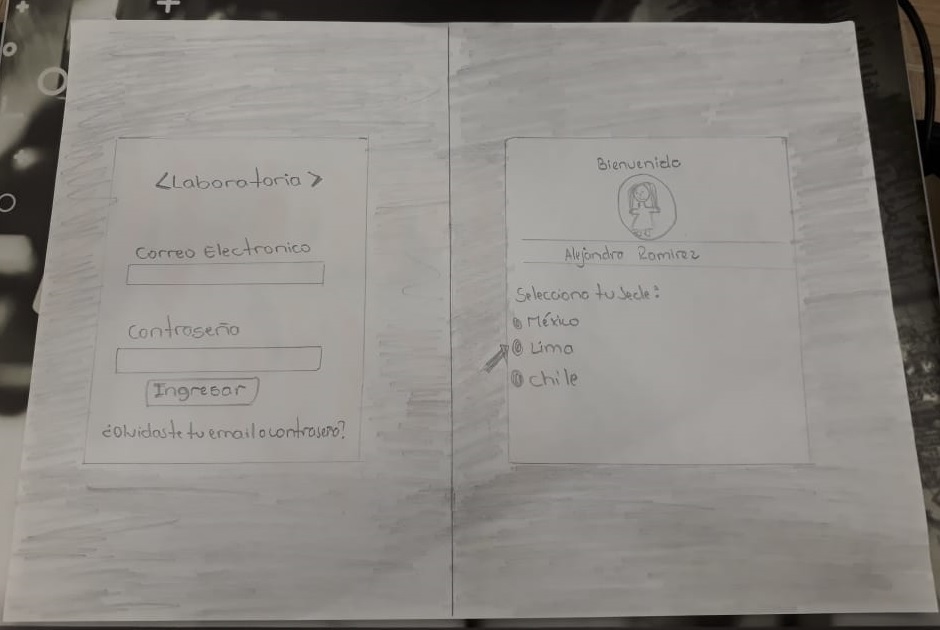 <Laboratoria>
Correo Electronico
Contraseña
Ingresar
¿Olvidaste tu email o contraseña?
Bienvenido
Alejandra Ramirez
Selecciona tu sede:
México
Lima
Chile